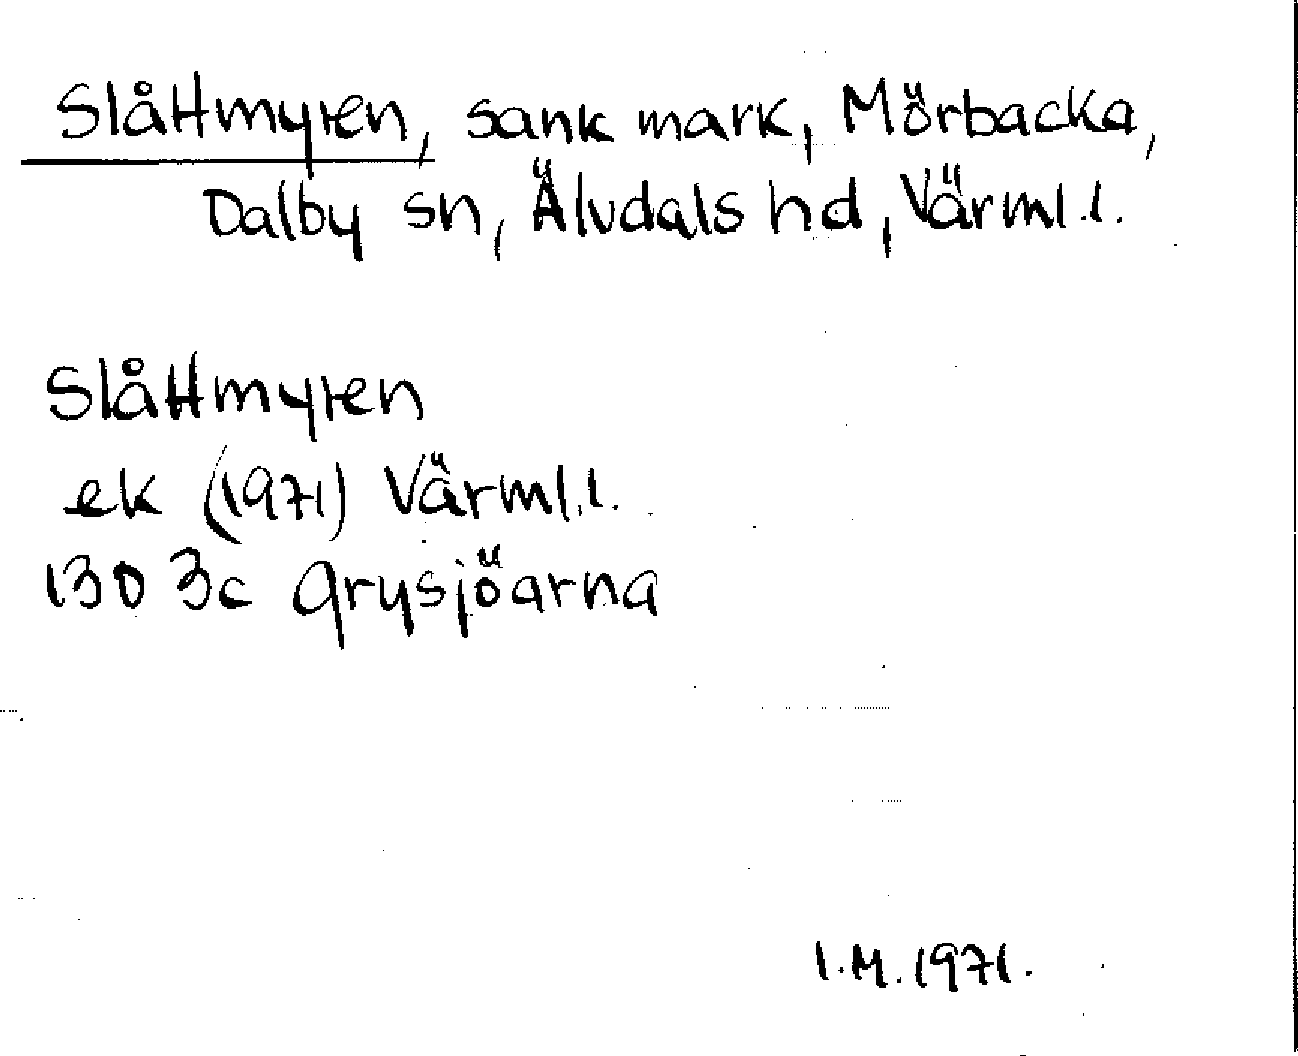 Slåttmyren, sank mark, Mörbacka,
Dalby sn, Älvdals hd, Värml.l.
Slåttmyren
ek (1971) Värml.l.
13D 3c Grysjöarna
I.M. 1971.